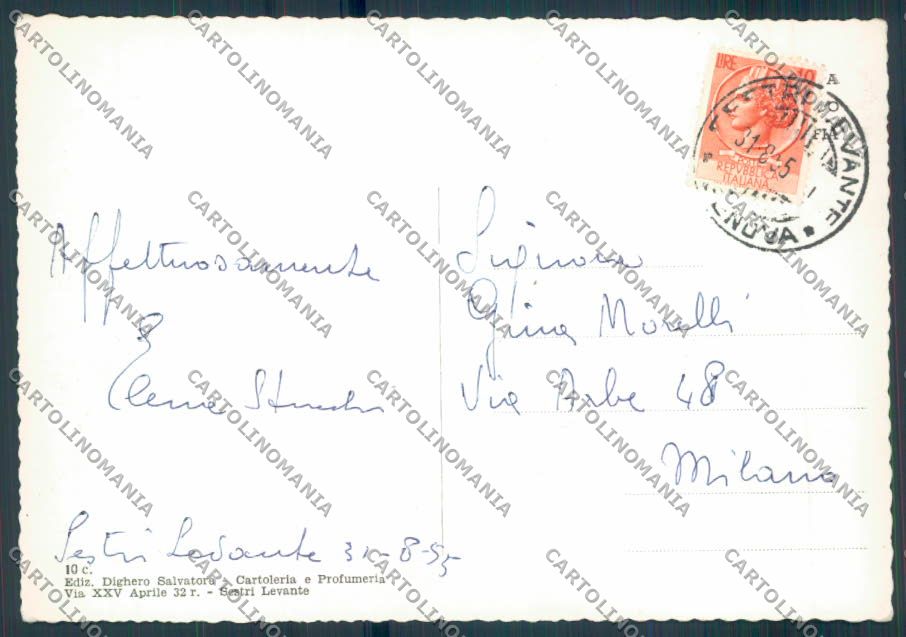 Affettuosamente
Elena
Sestri Levante 31-8-55
10 c.
Ediz. Dighero Salvatore - Cartoleria e Profumeria
Via XXV Aprile 32 r. - Sestri Levante
LIRE 10
REPVBBLICA
ITALIANA
SESTRI LEVANTE
GENOVA
31.8.55
A
O
FIA
Signora
Gina Morelli
Via Arbe 48
Milano
CARTOLINOMANIA